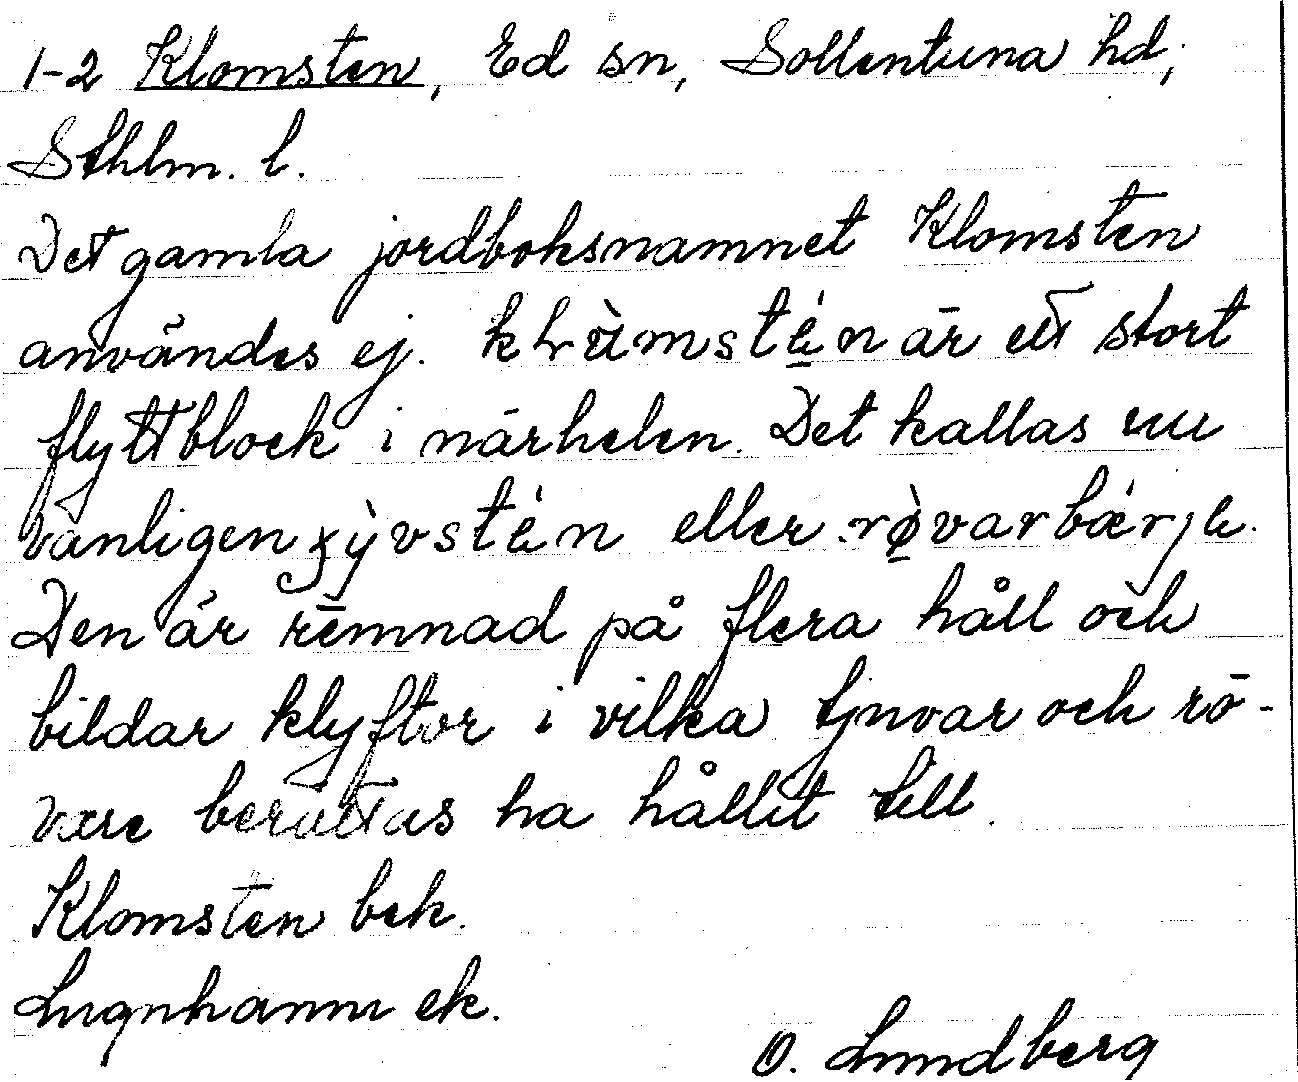 1-2 Klomsten, Ed sn, Sollentuna hd,
Sthlm. l.
Det gamla jordboksnamnet Klomsten
användes ej. är ett stort
flyttblock i närheten. Det kallas nu
vanligen eller
Den är rämnad på flera håll och
bildar klyftor i vilka tjuvar och rö-
vare berättas ha hållit till.
Klomsten bek.
Lugnhamn ek.
O. Lundberg